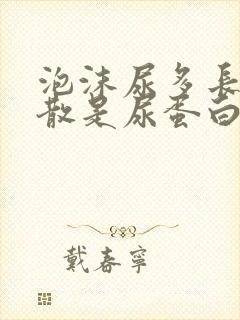 泡沫尿多長
散是尿蛋白
戴春寧